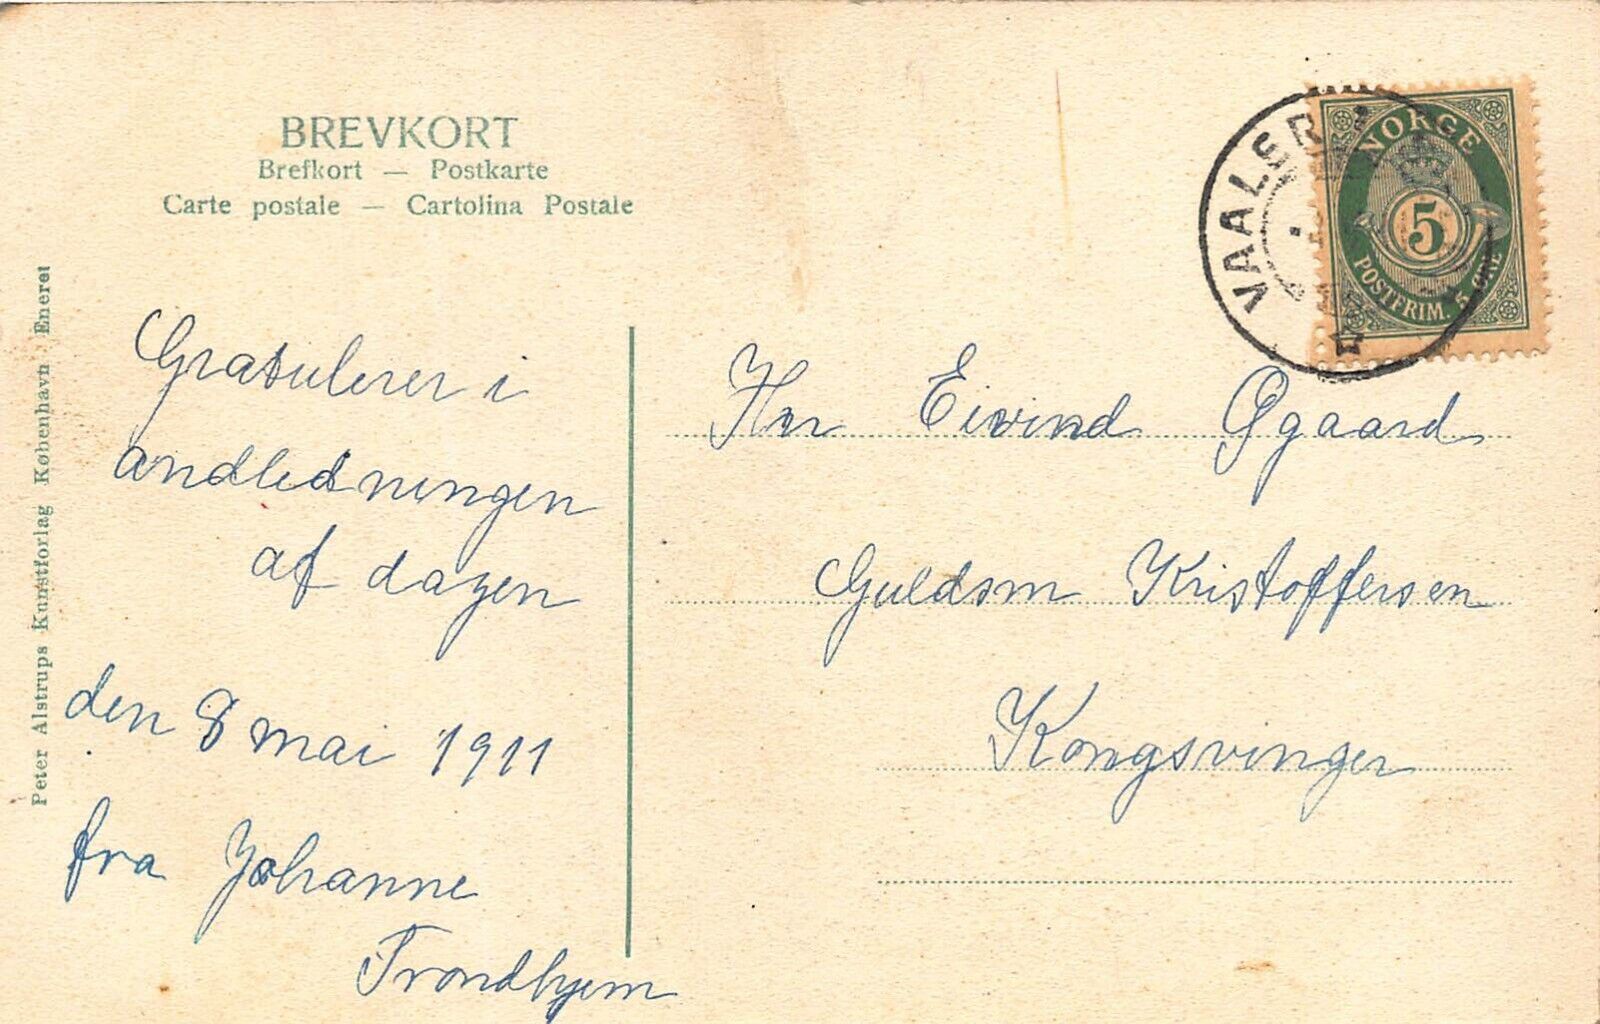 BREVKORT
Brefkort — Postkarte
Carte postale — Cartolina Postale
Peter Alstrups Kunstforlag København Eneret
Gratulerer i
andledningen
af dagen
den 8 mai 1911
fra Johanne
Trondhjem
NORGE
5
POSTFRIM. 5 ØRE
Hr Eivind Øgaard
Guldsm Kristoffersen
Kongsvinger